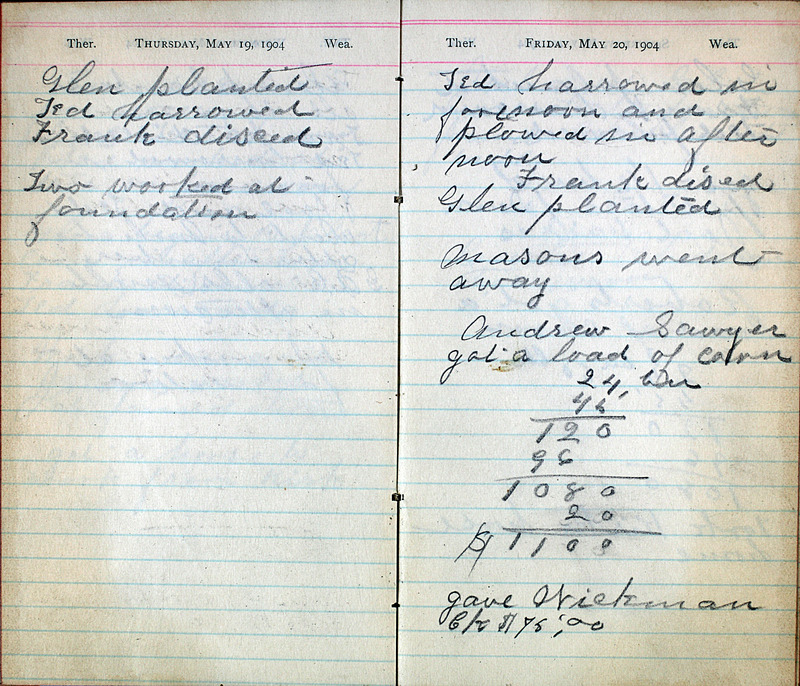 Ther. THURSDAY, MAY 19, 1904 Wea.
Glen planted
Ted harrowed
Frank disced
Two worked at
foundation
Ther. FRIDAY, MAY 20, 1904 Wea.
Ted harrowed in
forenoon and
plowed in after
noon
Frank dised
Glen planted
Masons went
away
Andrew Sawyer
got a load of corn
24, bu
45
120
96
1080
20
$ 1100
gave Wickman
Ck $75.00